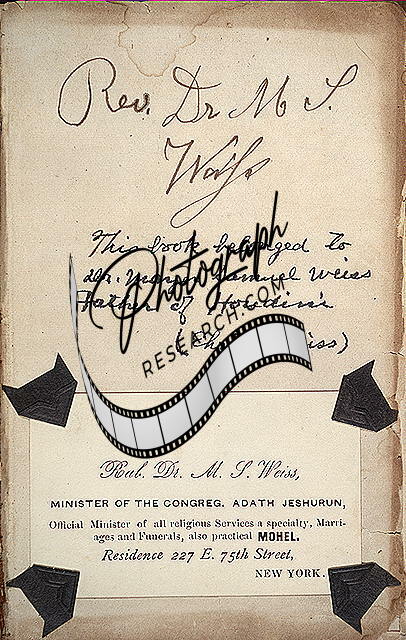 Rev. Dr M S
Weiss
This book belonged to
Dr. Samuel Weiss
Father of Houdini's
Photograph
RESEARCH.COM
Rab. Dr. M. S. Weiss,
MINISTER OF THE CONGREG. ADATH JESHURUN,
Official Minister of all religious Services a specialty, Marri-
ages and Funerals, also practical MOHEL.
Residence 227 E. 75th Street,
NEW YORK.